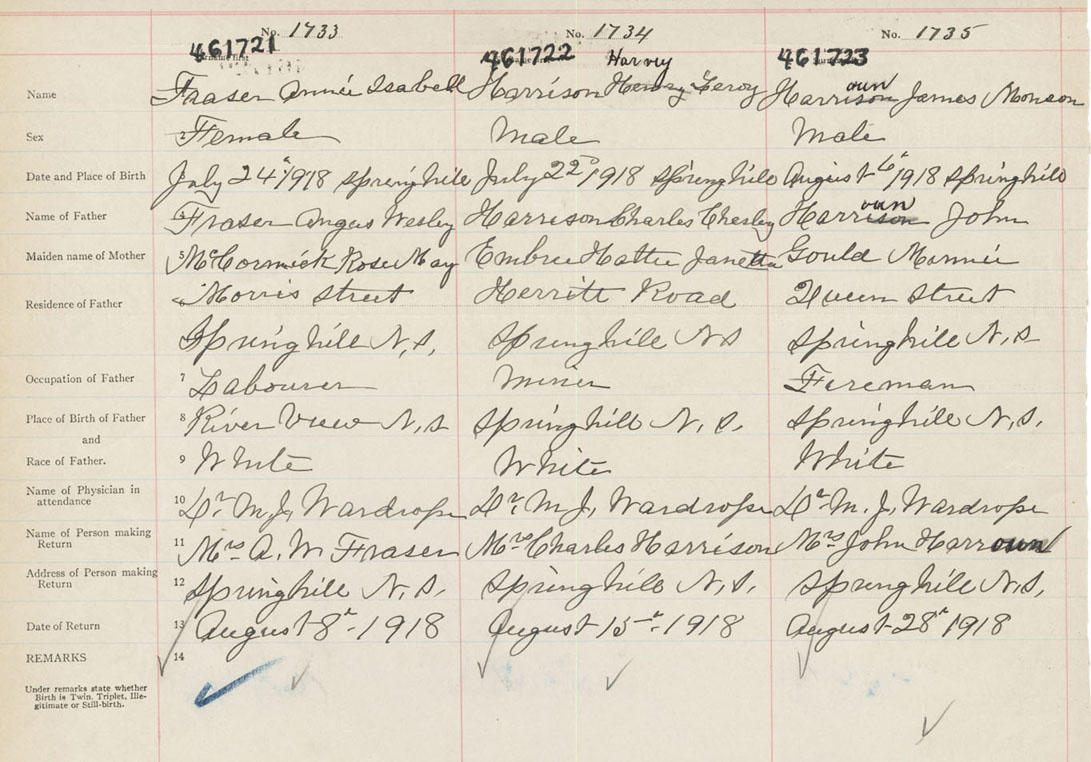 No. 1733 No. 1734 No. 1735
461721 461722 Harvey 461723
Name Fraser Annie Isabell Harrison Henry Leroy Harrison oun James Monson
Sex 2 Female Male Male
Date and Place of Birth July 24" 1918 Springhill July 22" 1918 Springhill August 6" 1918 Springhill
Name of Father 4 Fraser Angus Wesley Harrison Charles Chesley Harrison oun John
Maiden name of Mother 5 McCormick Rose May Embree Hattie Janetta Gould Minnie
Residence of Father 6 Morris Street Herritt Road Queen Street
Springhill N.S. Springhill NS Springhill N.S
Occupation of Father 7 Labourer Miner Fireman
Place of Birth of Father 8 River View N.S Springhill N.S. Springhill N.S.
and
Race of Father. 9 White White White
Name of Physician in
attendance 10 Dr. M.J. Wardrope Dr. M.J. Wardrope Dr. M.J. Wardrope
Name of Person making
Return 11 Mrs A.W. Fraser Mrs Charles Harrison Mrs John Harroun
Address of Person making
Return 12 Springhill N.S. Springhill N.S. Springhill N.S.
Date of Return 13 August 8" 1918 August 15" 1918 August 28" 1918
REMARKS 14
Under remarks state whether
Birth is Twin, Triplet, Ille-
gitimate or Still-birth.